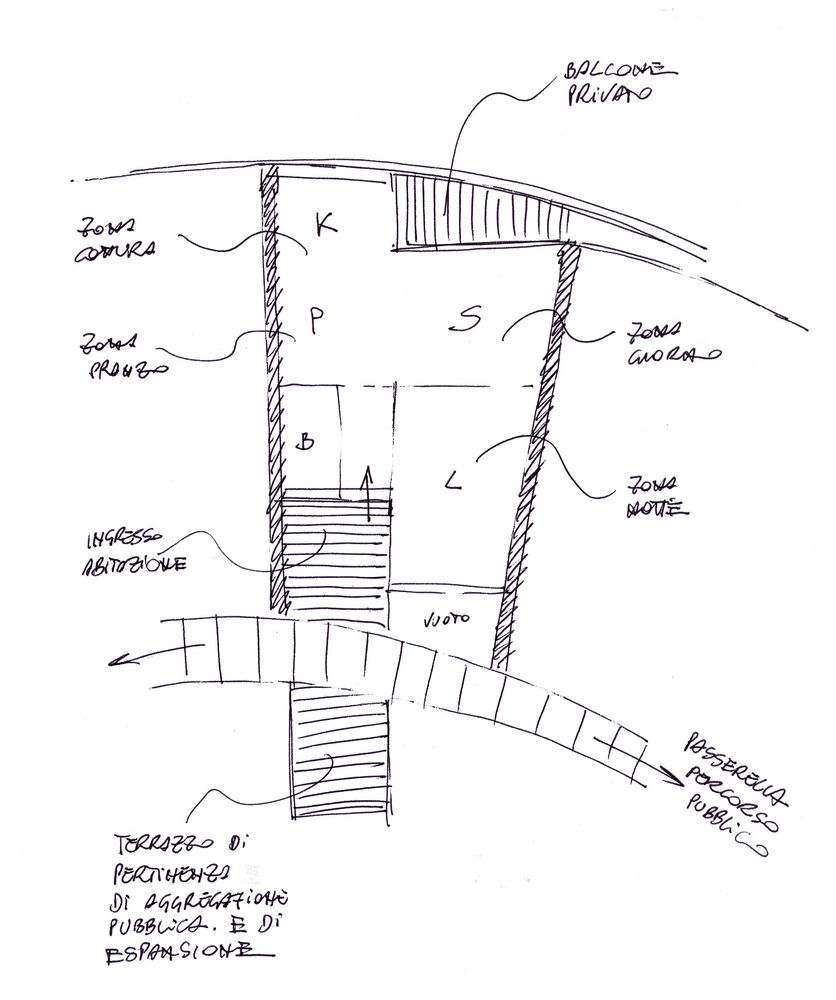 BALCONE
PRIVATO
K
ZONA
COTTURA
P
S
ZONA
PRANZO
ZONA
GIORNO
B
L
ZONA
NOTTE
INGRESSO
ABITAZIONE
VUOTO
PASSERELLA
PERCORSO
PUBBLICO
TERRAZZO Di
PERTINENZA
DI AGGREGAZIONE
PUBBLICA. E DI
ESPANSIONE